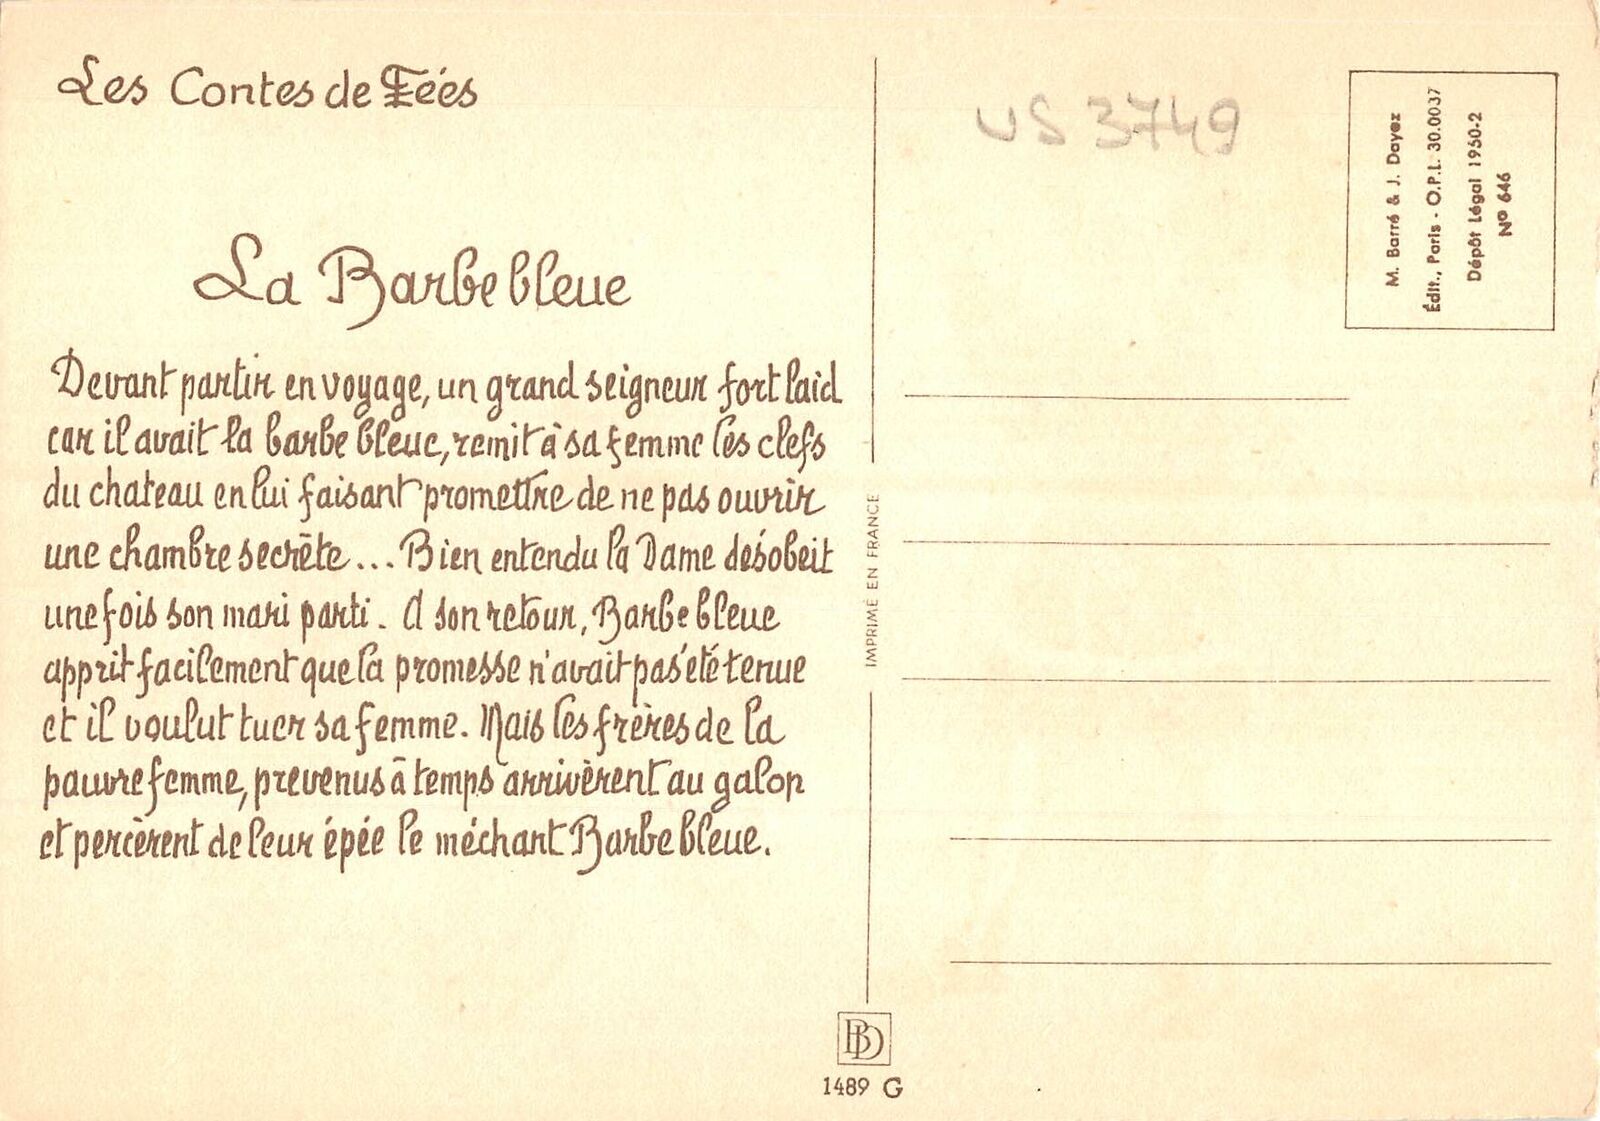 Les Contes de Fées
La Barbe bleue
Devant partir en voyage, un grand seigneur fort laid
car il avait la barbe bleue, remit à sa femme les clefs
du chateau en lui faisant promettre de ne pas ouvrir
une chambre secrète... Bien entendu la Dame désobeit
une fois son mari parti. A son retour, Barbe bleue
apprit facilement que la promesse n'avait pas été tenue
et il voulut tuer sa femme. Mais les frères de la
pauvre femme, prevenus à temps arrivèrent au galop
et percèrent de leur épée le méchant Barbe bleue.
IMPRIMÉ EN FRANCE
BD
1489 G
US 3749
M. Barré & J. Dayez
Édit., Paris - O.P.L. 30.0037
Dépôt Légal 1950-2
Nº 646